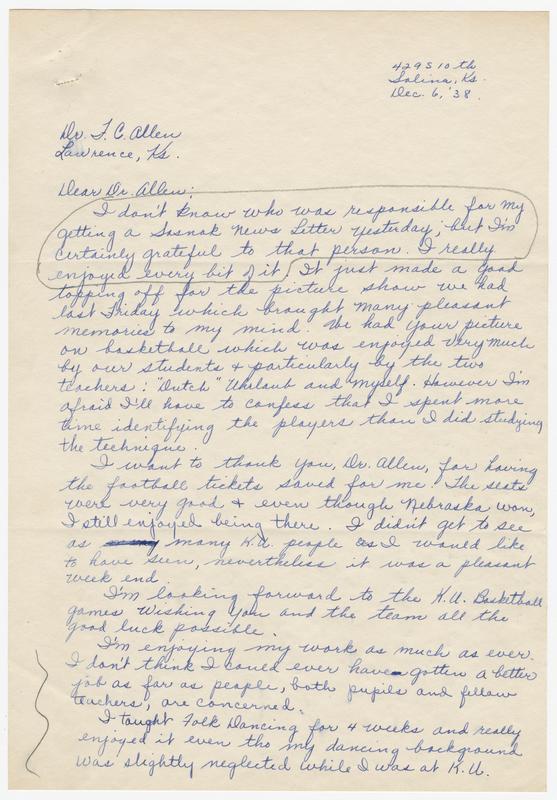 429 S 10th
Salina, Ks.
Dec. 6, '38.
Dr. F. C. Allen
Lawrence, Ks.
Dear Dr. Allen:
I don't know who was responsible for my
getting a Sosnak News Letter yesterday; but I'm
certainly grateful to that person. I really
enjoyed every bit of it. It just made a good
topping off for the picture show we had
last Friday which brought many pleasant
memories to my mind. We had your picture
on basketball which was enjoyed very much
by our students & particularly by the two
teachers: "Dutch" Uhrlaub and myself. However I'm
afraid I'll have to confess that I spent more
time identifying the players than I did studying
the technique.
I want to thank you, Dr. Allen, for having
the football tickets saved for me. The seats
were very good & even though Nebraska won,
I still enjoyed being there. I didn't get to see
as many K.U. people as I would like
to have seen, nevertheless it was a pleasant
week end.
I'm looking forward to the K.U. Basketball
games. Wishing you and the team all the
good luck possible.
I'm enjoying my work as much as ever.
I don't think I could ever have gotten a better
job as far as people, both pupils and fellow
teachers, are concerned.
I taught Folk Dancing for 4 weeks and really
enjoyed it even tho my dancing background
was slightly neglected while I was at K.U.